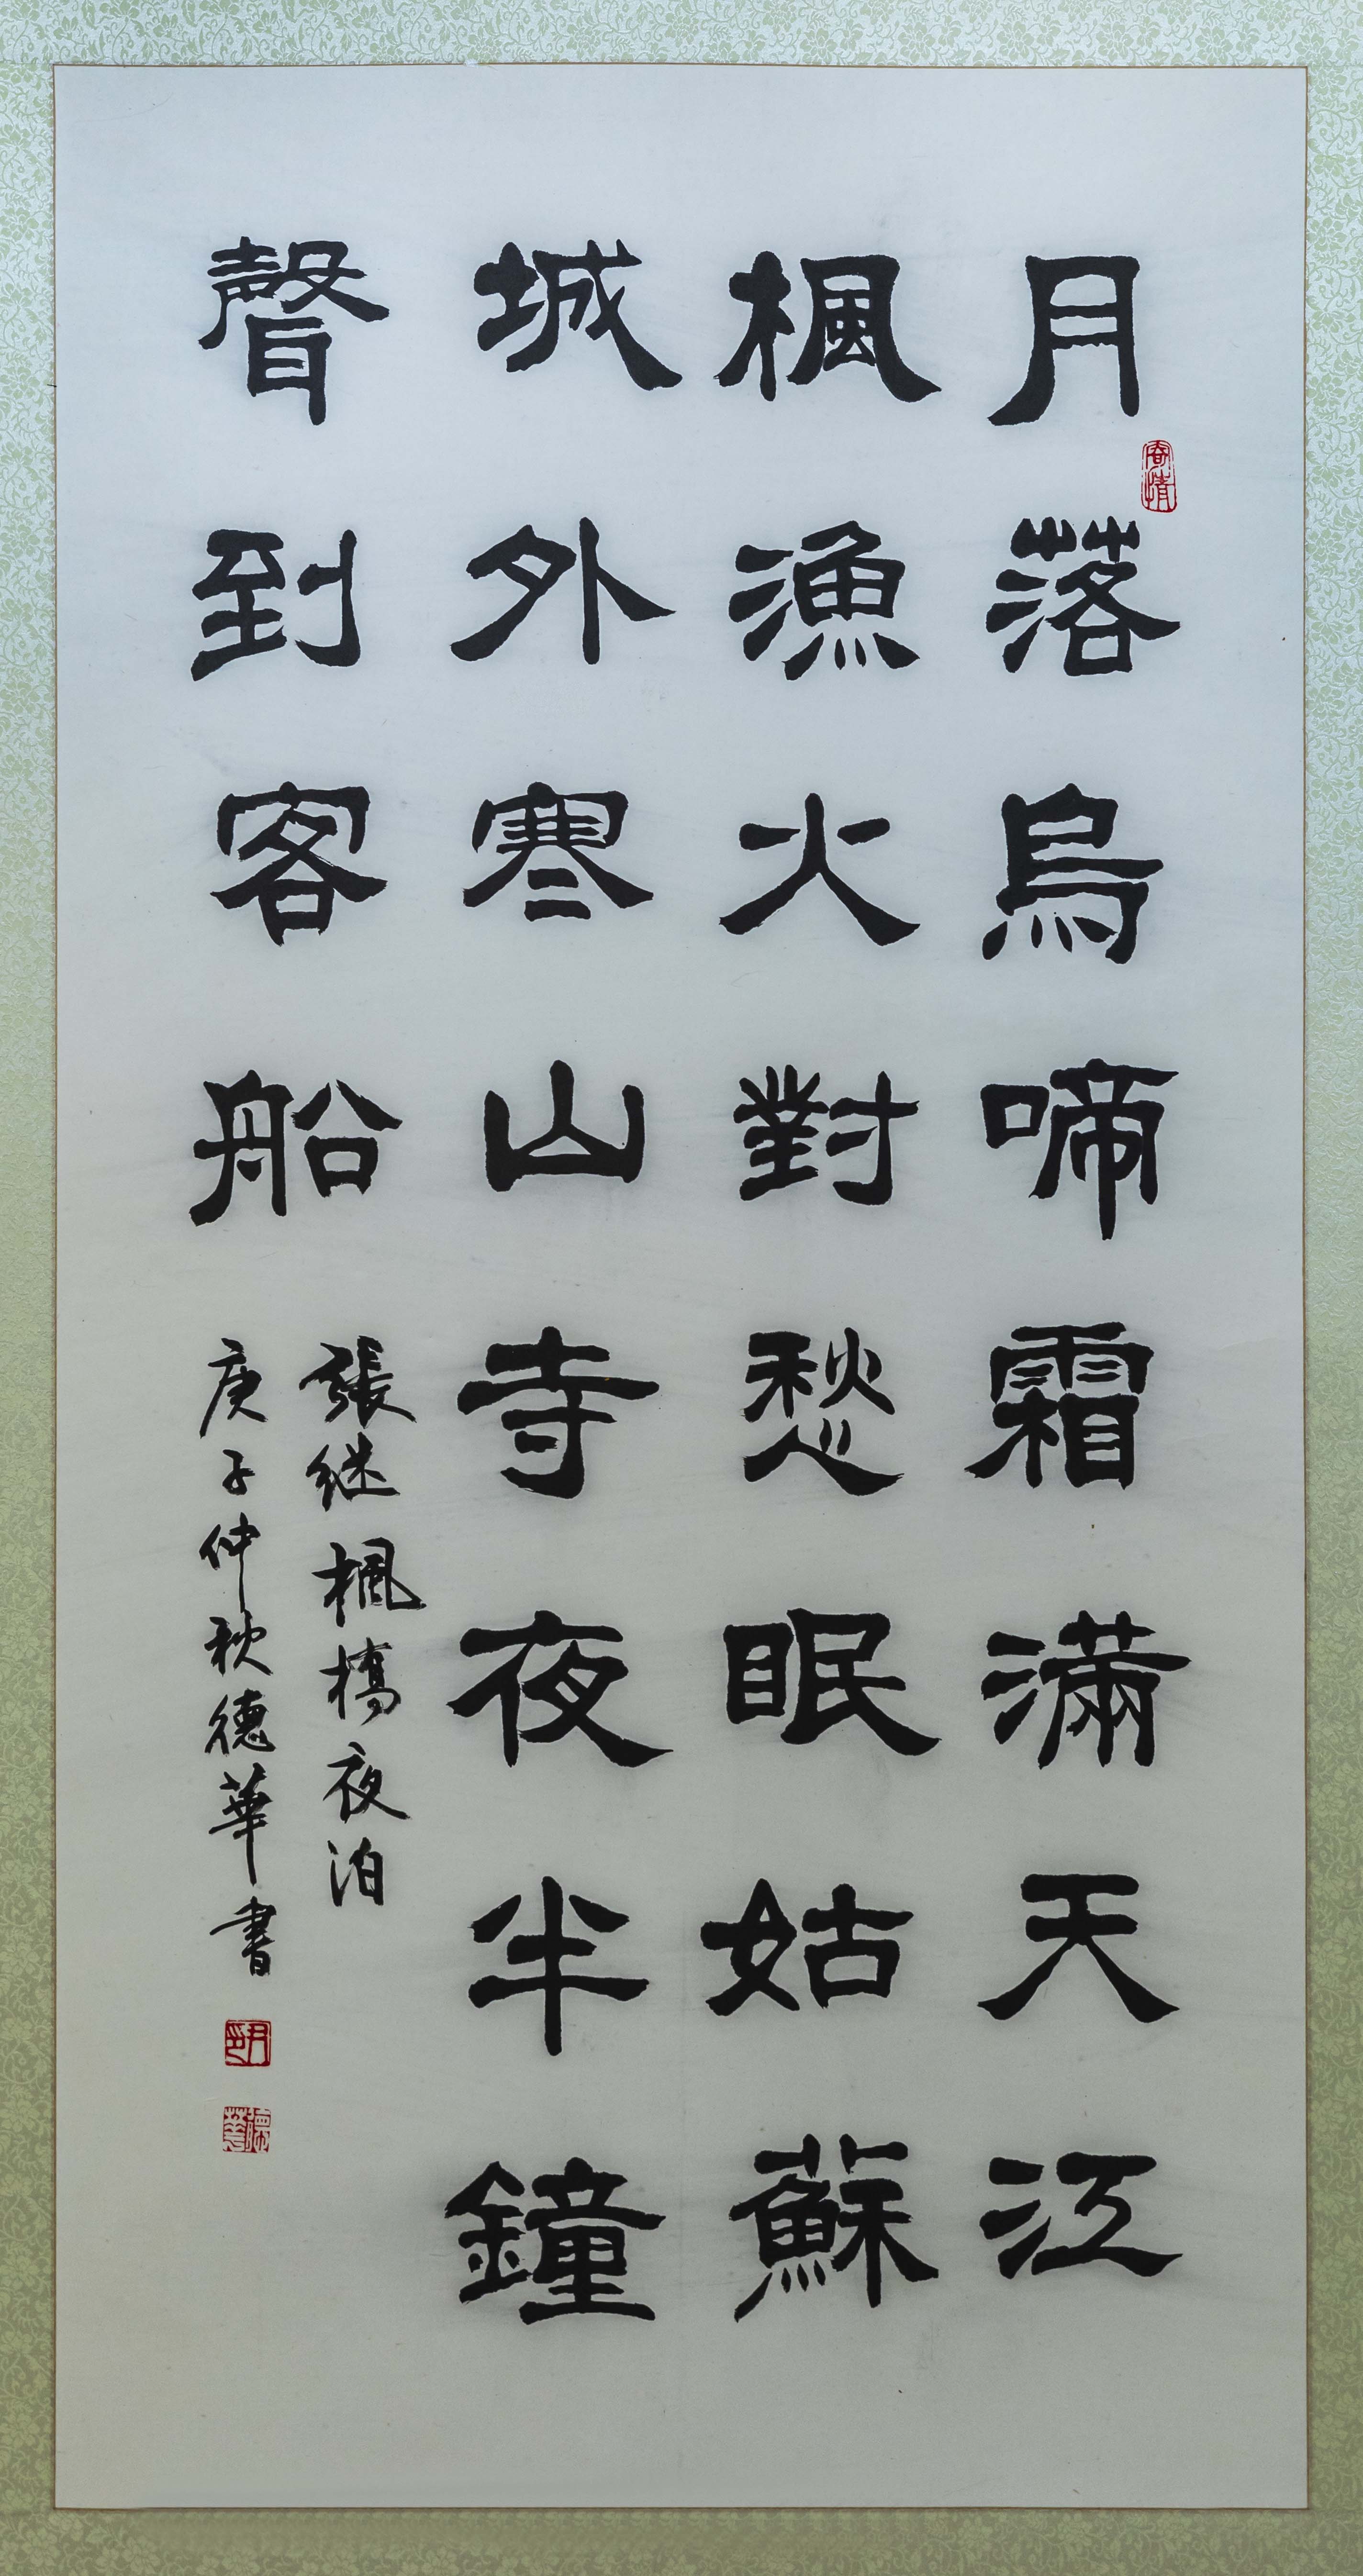 月落烏啼霜滿天江
楓漁火對愁眠姑蘇
城外寒山寺夜半鐘
聲到客船
張继楓橋夜泊
庚子仲秋德華書
德華